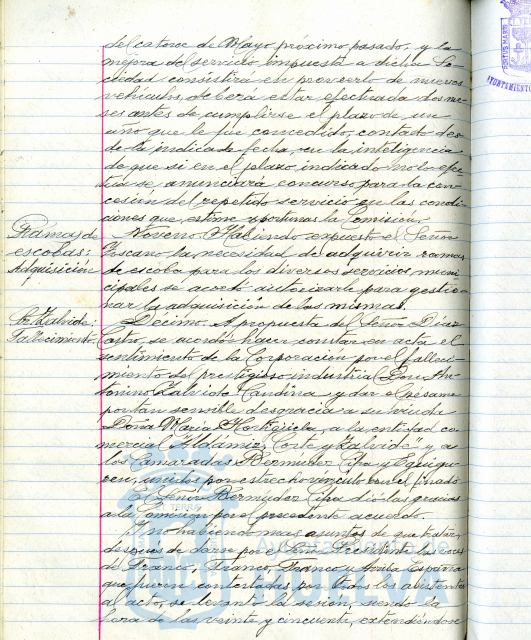 del catorce de Mayo próximo pasado, y la
mejora del servicio impuesta a dicha So-
ciedad consistirá en proveerlo de nuevos
vehículos, deberá estar efectuada dos me-
ses antes de cumplirse el plazo de un
año que le fue concedido, contado des-
de la indicada fecha, en la inteligencia
de que si en el plazo indicado no lo efec-
túa se anunciará concurso para la con-
cesión del repetido servicio en las condi-
ciones que estime oportunas la Comisión.
Ramas de
escobas;
Adquisición
Noveno. Habiendo expuesto el Señor
Toscano la necesidad de adquirir ramas
de escoba para los diversos servicios muni-
cipales se acordó autorizarle para gestio-
nar la adquisición de las mismas.
Sr. Zalvide;
Fallecimiento
Décimo. A propuesta del Señor Díaz
Castro, se acordó hacer constar en acta el
sentimiento de la Corporación por el falleci-
miento del prestigioso industrial Don An-
tonino Zalvide Candina y dar el pésame
por tan sensible desgracia a su viuda
Doña María Hortigüela, a la entidad co-
mercial "Matámiz, Corte y Zalvide" y a
los Camaradas Bermúdez Cifra y Eguigu-
ren, unidos por estrecho vínculo con el finado
El Señor Bermúdez Cifra dió las gracias
a la Comisión por el precedente acuerdo.
Y no habiendo mas asuntos de que tratar,
después de darse por el Señor Presidente las voces
de Franco, Franco, Franco y Arriba España
que fueron contestadas por todos los asistentes
al acto, se levantó la sesión, siendo la
hora de las veinte y cincuenta, extendiéndose
AYUNTAMIENTO